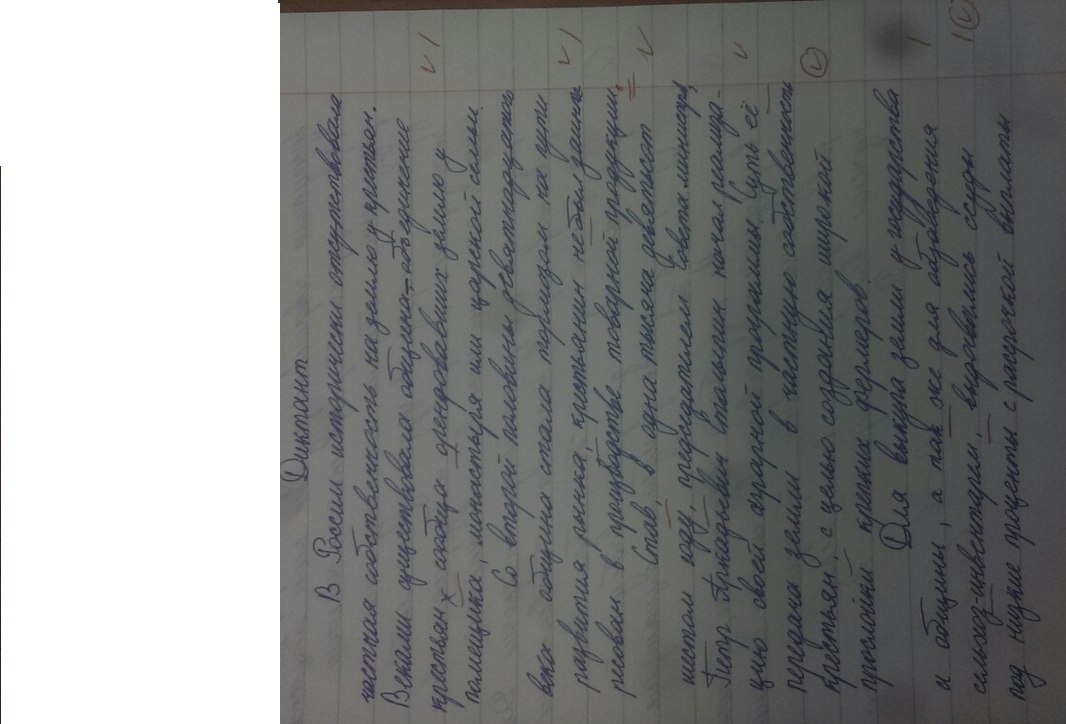 Диктант
В России исторически отсутствовала
частная собственность на землю у крестьян.
Веками существовала община – объединение
крестьян сообща арендовавших землю у
помещика, монастыря или царской семьи.
Со второй половины девятнадцатого
века община стала тормозом на пути
развития рынка, крестьянин не был заинте
ресован в производстве товарной продукции.
Став в одна тысяча девятисот
шестом году, председателем Совета министров,
Петр Аркадьевич Столыпин начал реализа-
цию своей аграрной программы. Суть её
передача земли в частную собственность
крестьян, с целью создания широкой
прослойки крепких фермеров.
Для выкупа земли у государства
и общины, а так же для обзаведения
сельхоз-инвентарем, выдавались ссуды
под низкие проценты с рассрочкой выплаты